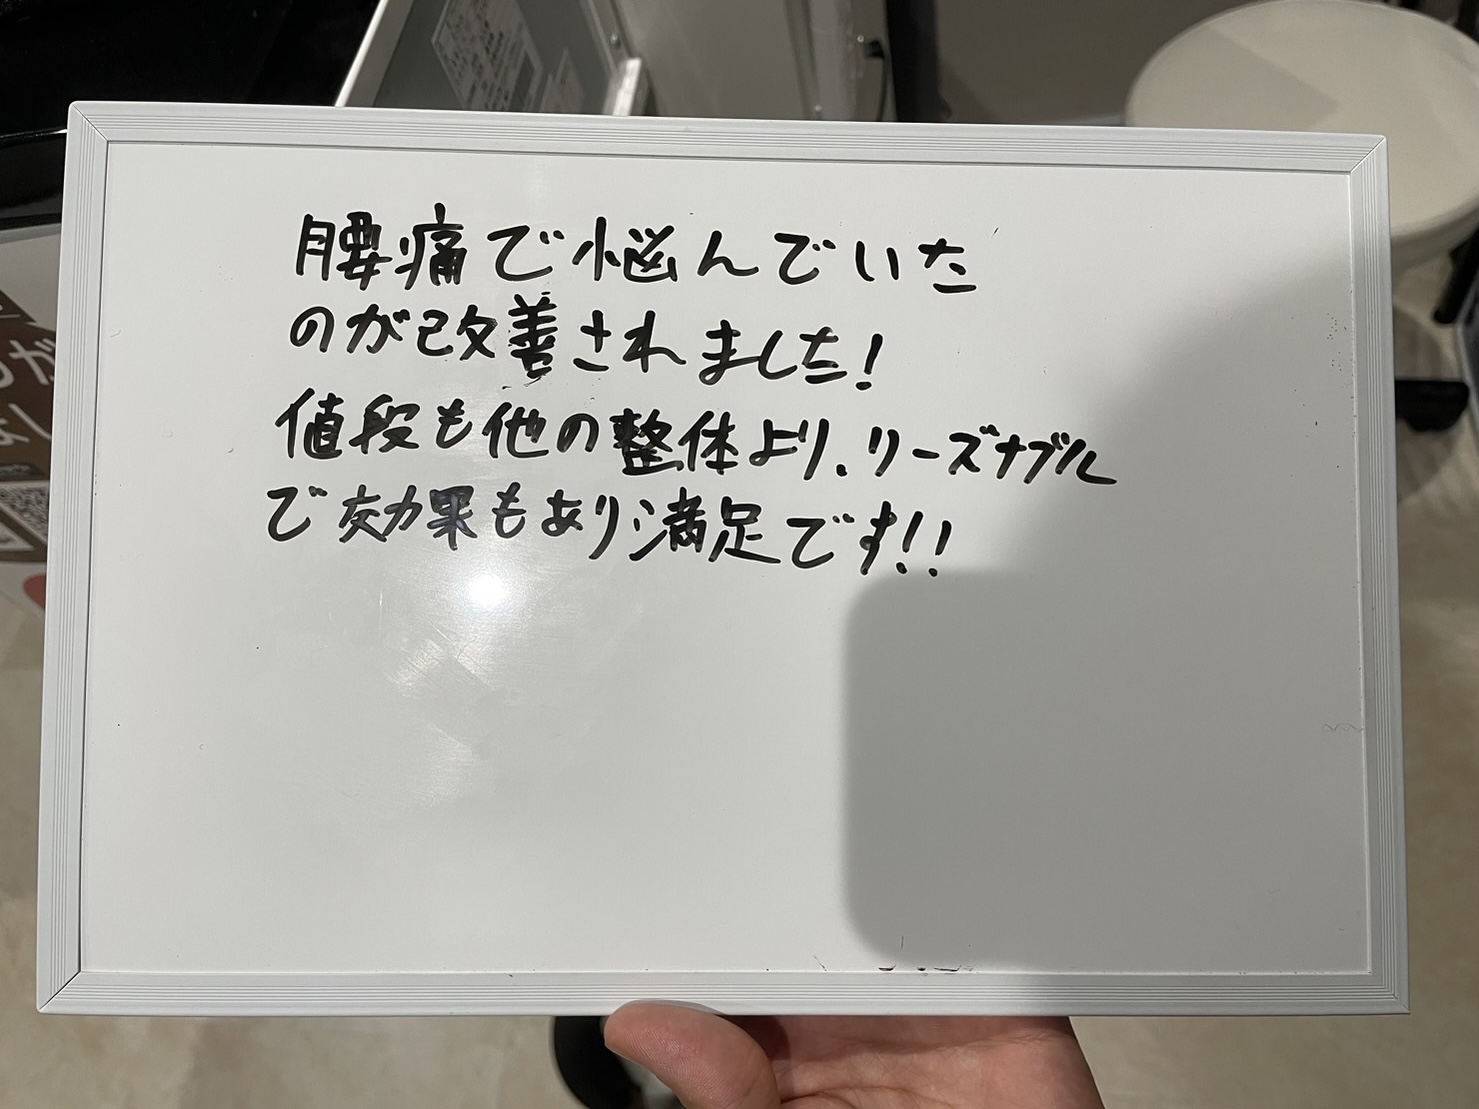 腰痛で悩んでいた
のが改善されました!
値段も他の整体より、リーズナブル
で効果もあり満足です!!